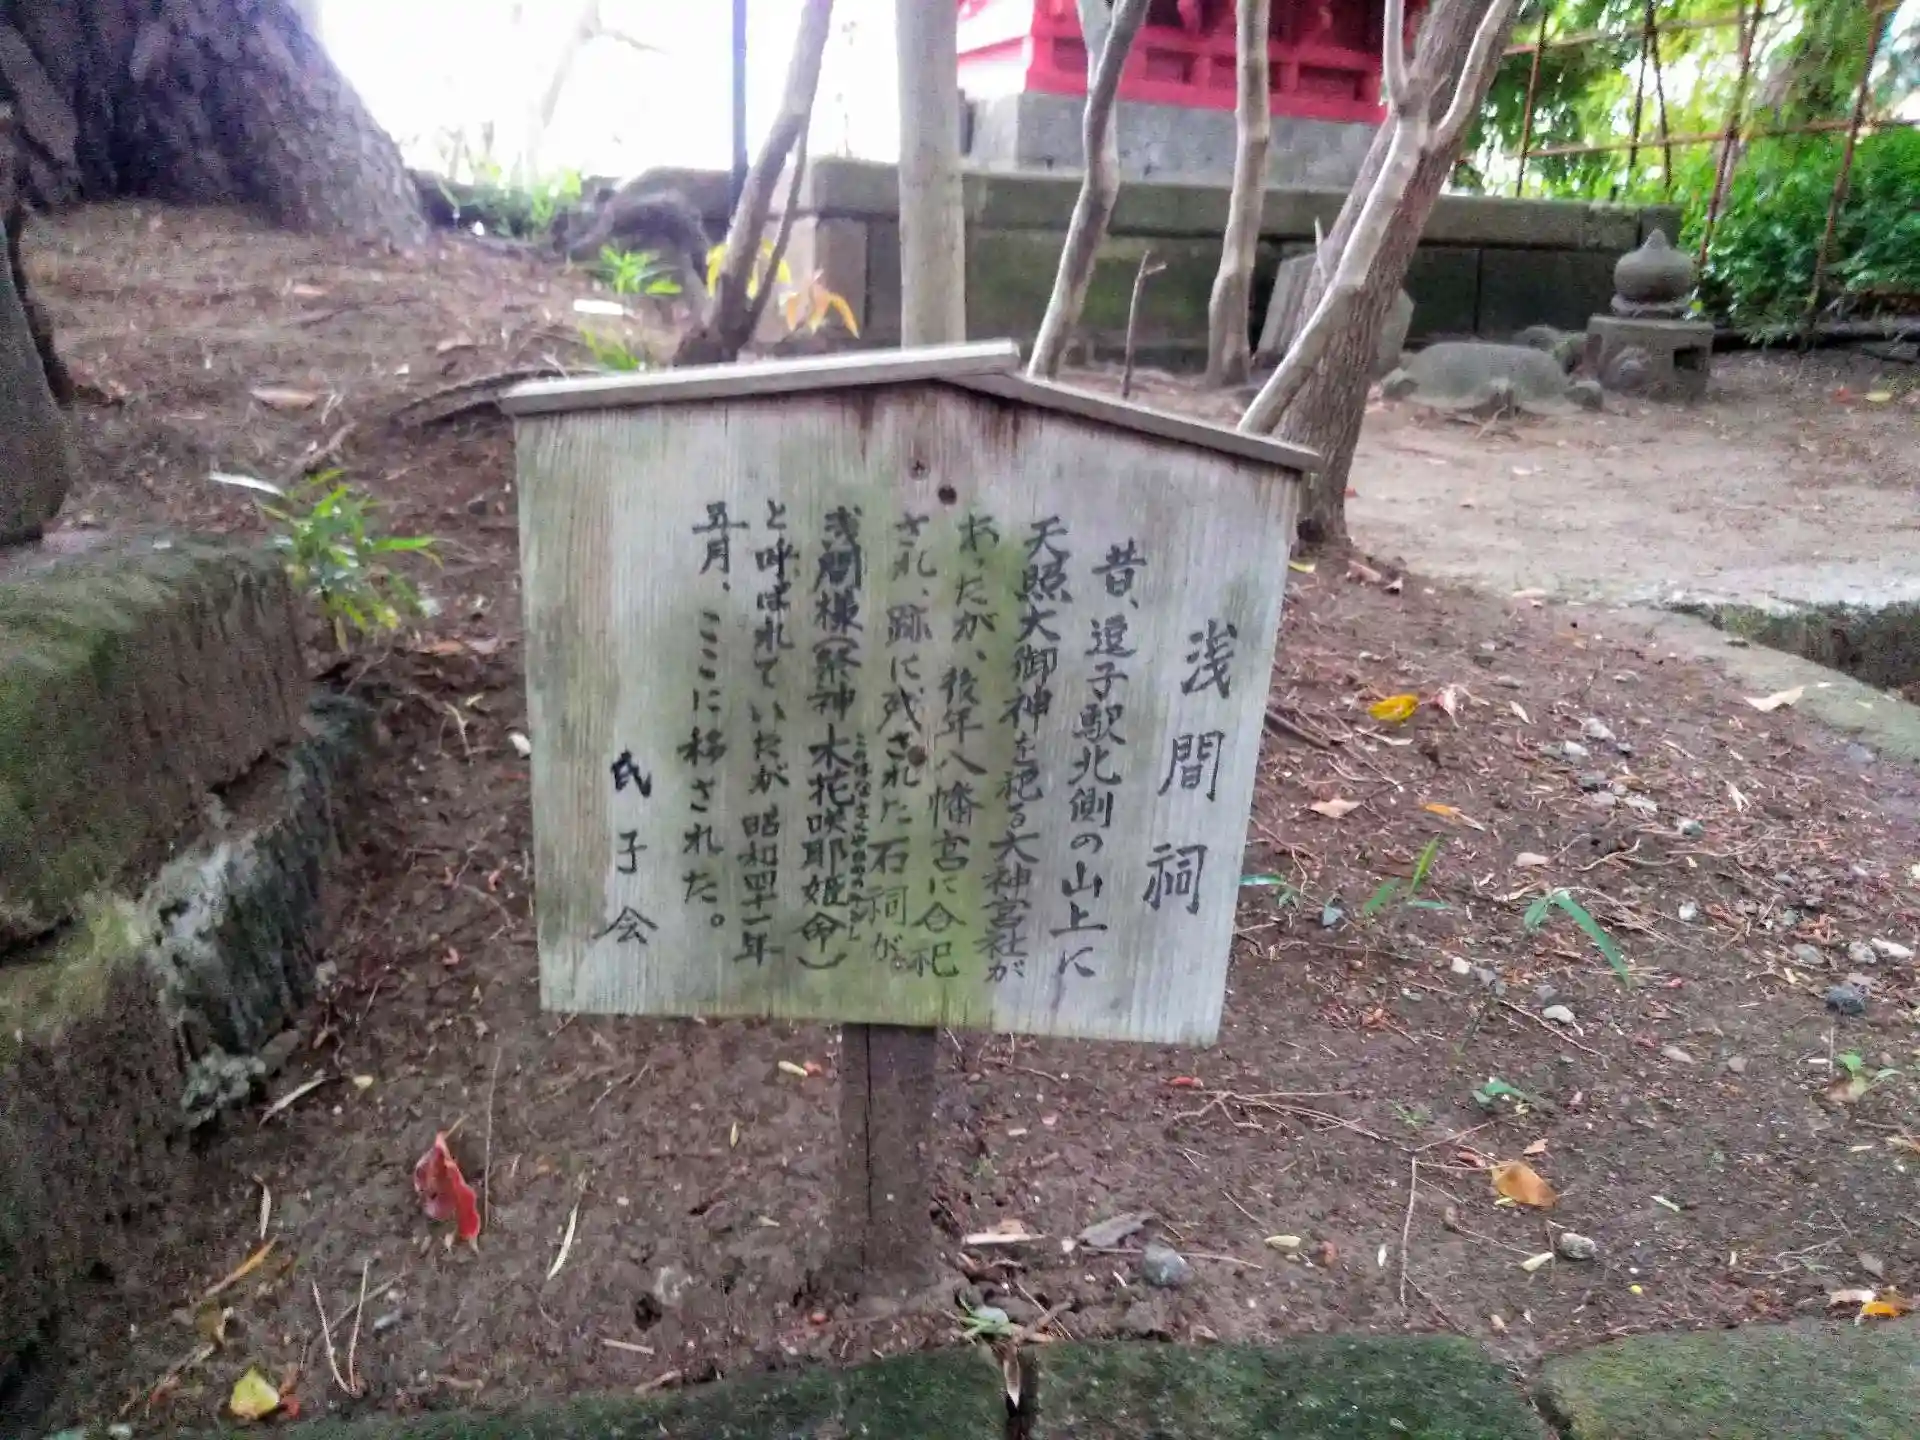 浅間祠
昔、逗子駅北側の山上に
天照大御神を祀る大神宮社が
あったが、後年八幡宮に合祀
され、跡に残された石祠が、
浅間様(祭神木花咲耶姫命)
このはなさくやひめのみこと
と呼ばれていたが昭和四十一年
五月、ここに移された。
氏子会